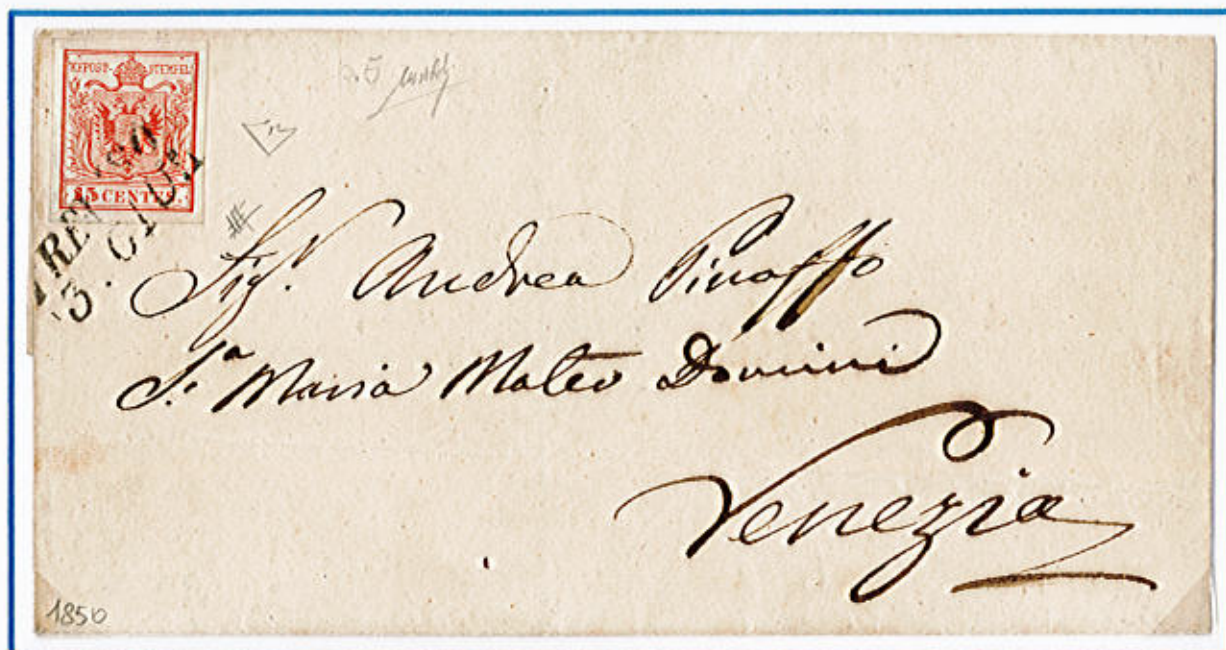 KKPOST-STEMPEL
15 CENTES.
TREVISO
3. GIU.
5
Sig.r Andrea
S.a Maria Mater Domini
Venezia
1850